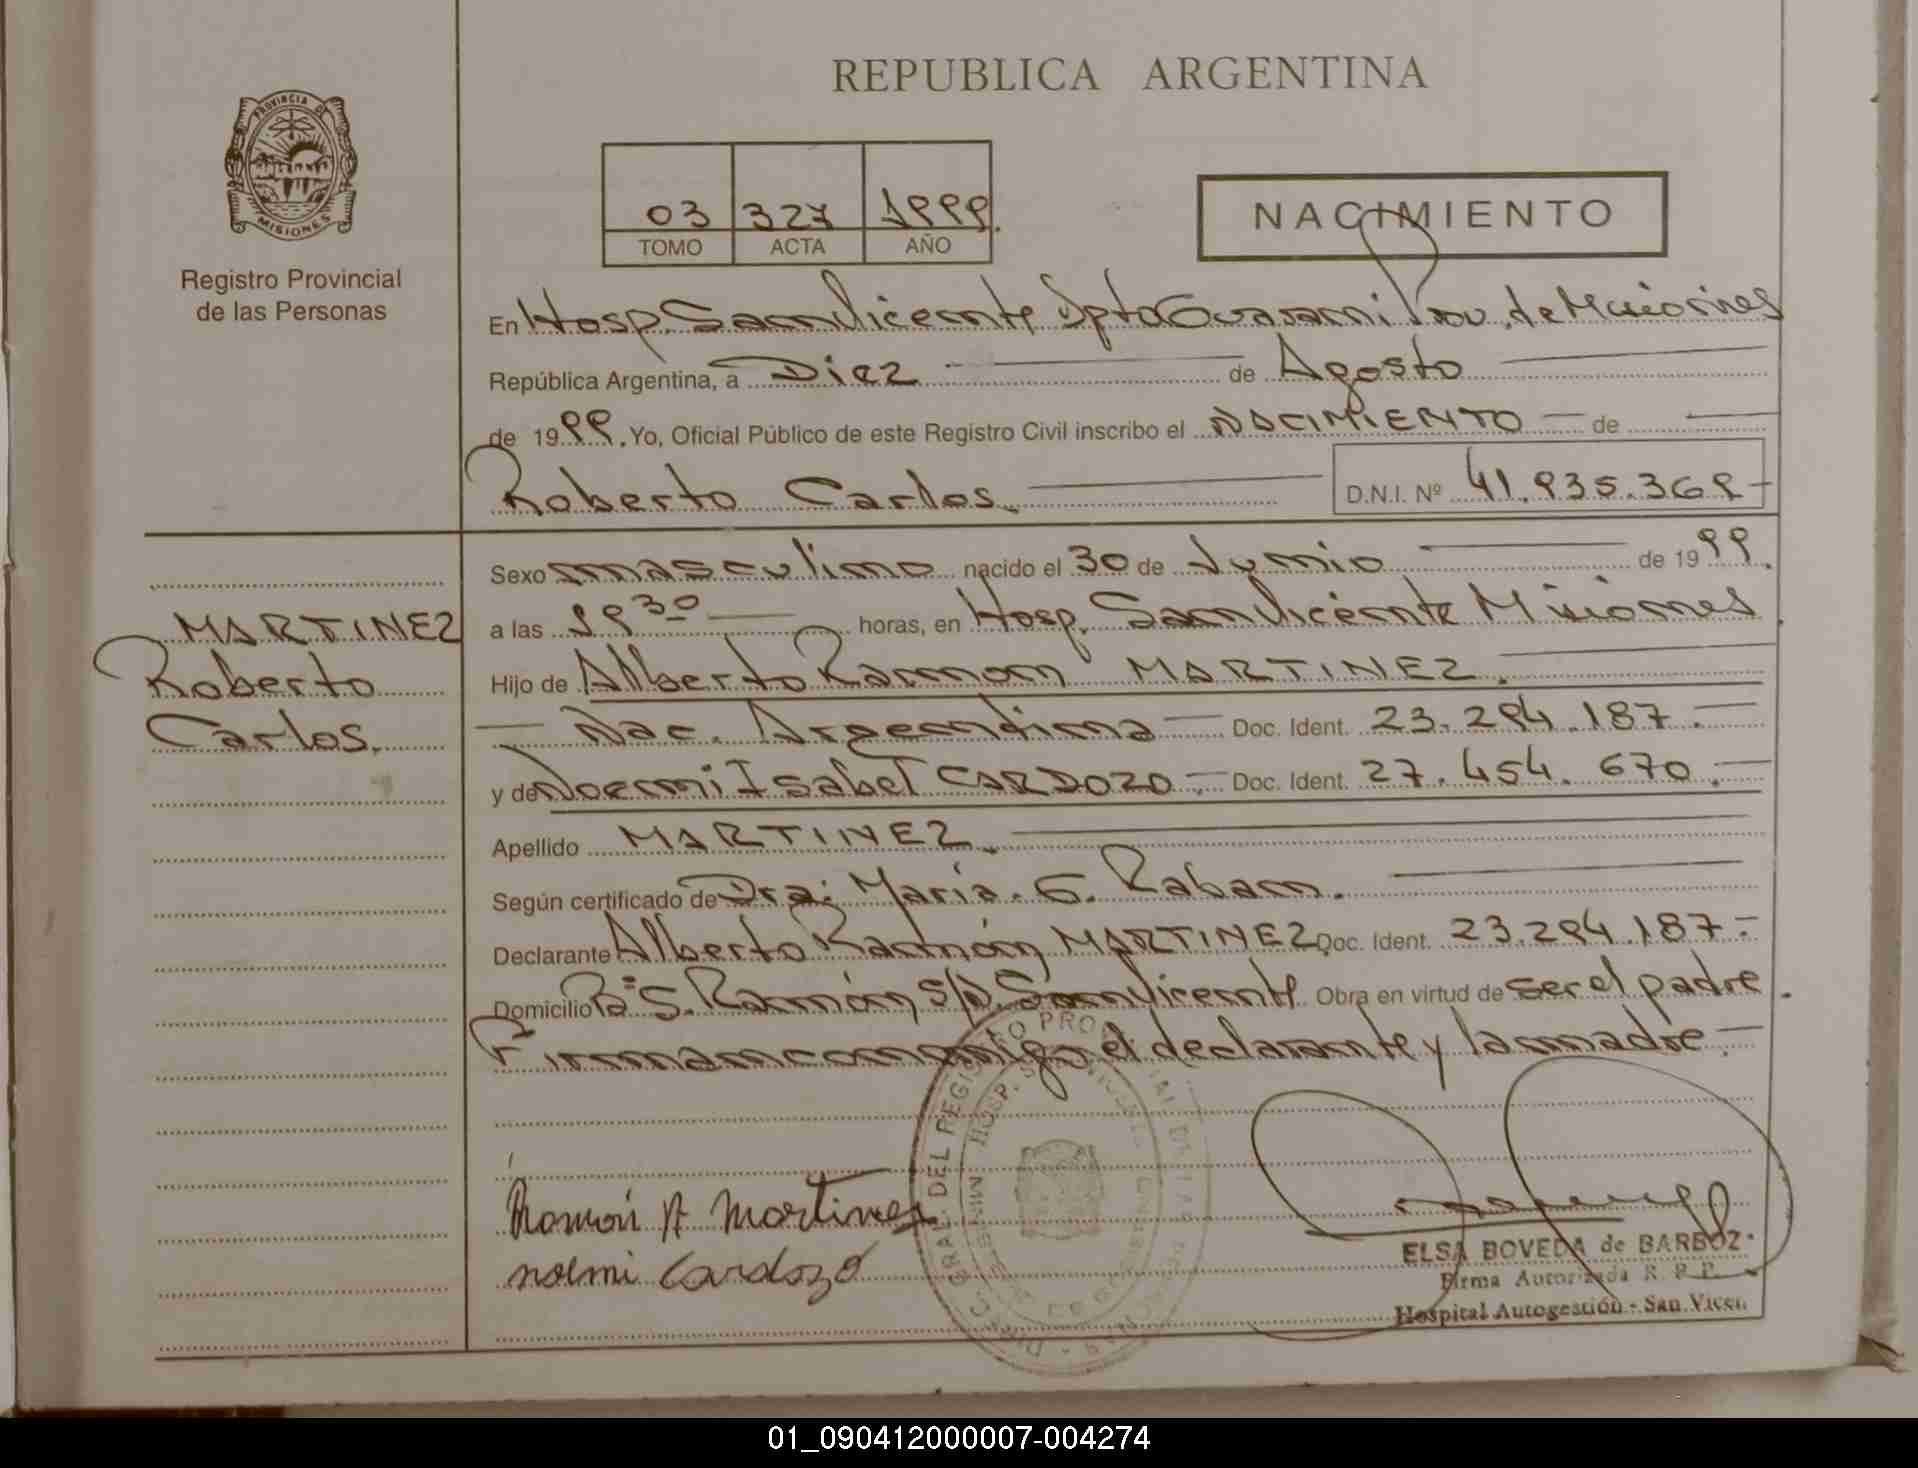 REPUBLICA ARGENTINA
PROVINCIA DE MISIONES
Registro Provincial
de las Personas
03 327 1999.
TOMO ACTA AÑO
NACIMIENTO
En Hosp. San Vicente Dpto Guarani Prov. de Misiones
República Argentina, a Diez de Agosto
de 1999. Yo, Oficial Público de este Registro Civil inscribo el NACIMIENTO de
Roberto Carlos. D.N.I. Nº 41.935.369-
MARTINEZ
Roberto
Carlos.
Sexo masculino nacido el 30 de Junio de 1999.
a las 19 30 horas, en Hosp. San Vicente Misiones
Hijo de Alberto Ramon MARTINEZ.
Nac. Argentina Doc. Ident. 23.294.187.-
y de Noemi Isabel CARDOZO.- Doc. Ident. 27.454.670.-
Apellido MARTINEZ.
Según certificado de Dra: María. G. Raban.
Declarante Alberto Ramón MARTINEZ Doc. Ident. 23.294.187.-
Domicilio Bº S. Ramón S/N. San Vicente Obra en virtud de ser el padre.
Firman conmigo el declarante y la madre.-
Ramón A Martinez
noemi Cardozo
ELSA BOVEDA de BARBOZ
Firma Autorizada R. P. P.
Hospital Autogestión - San Vicen
01_090412000007-004274